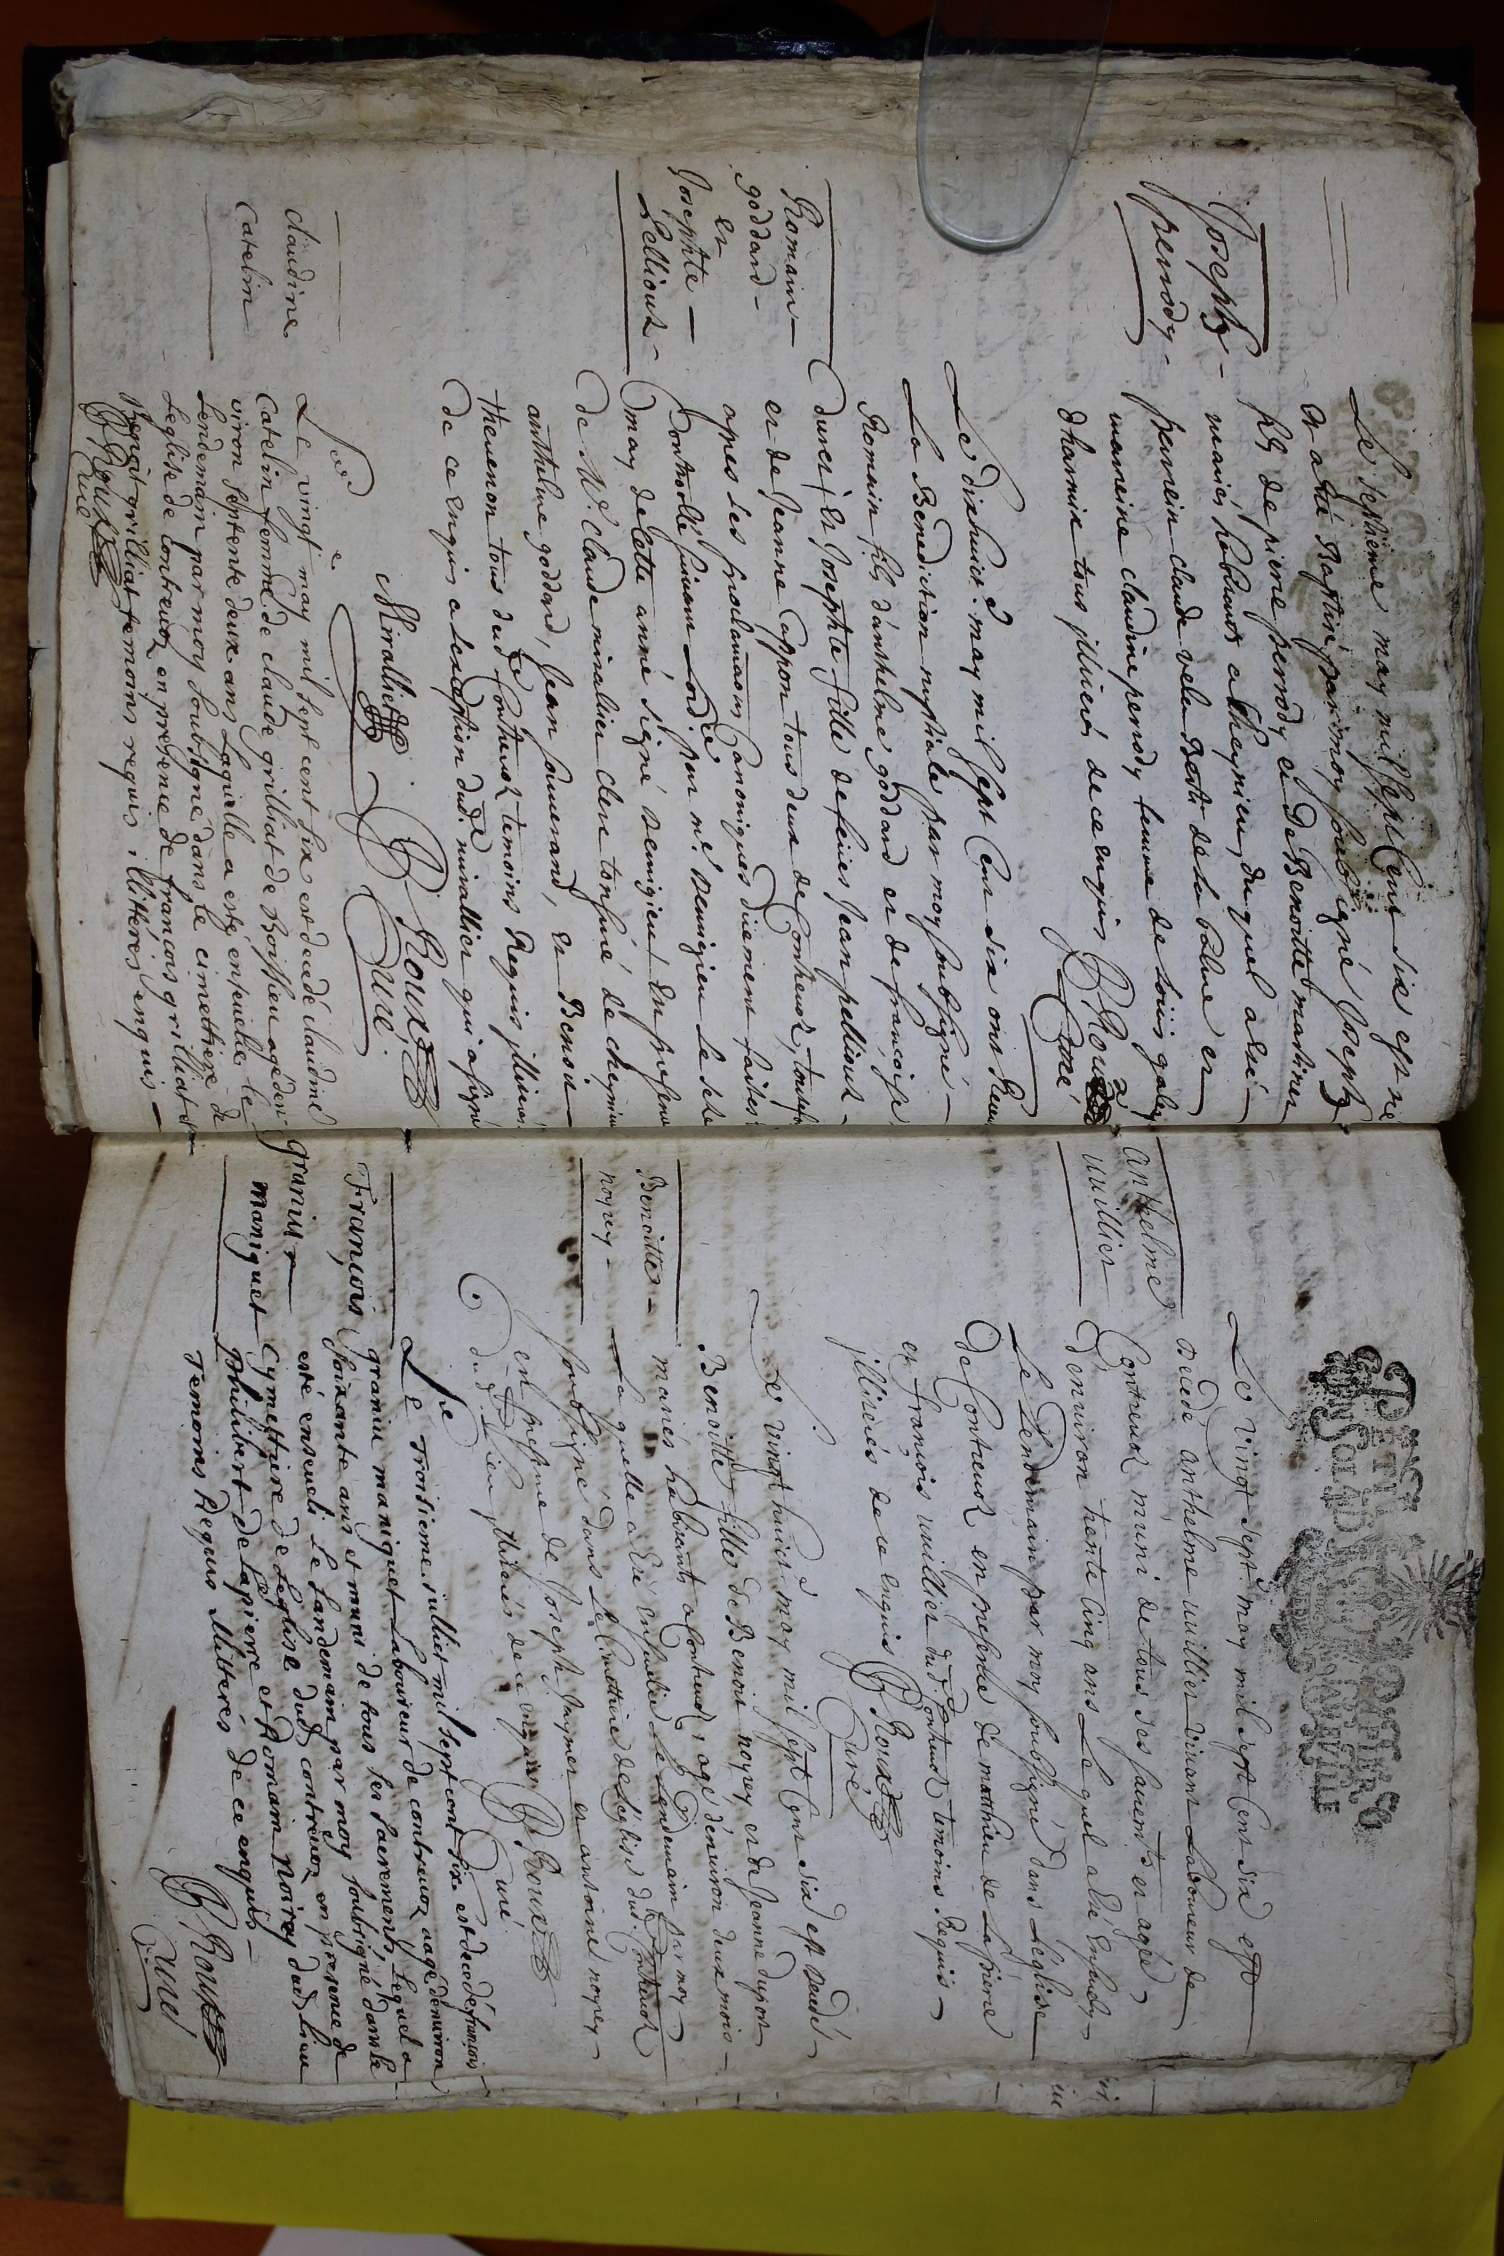 Joseph
perrody
Le septieme may mil sept cent six est né
et a été Baptisé par moy soubsigné Joseph
fils de pierre perrody et de Benoitte martiner
mariés habitants a Cheynieu, duquel a esté
parrein claude velu
marreine claudine perrody femme de Loüis
tous illiterés de ce enquis B Roux
Curé
Romain
goddard
et
Josephte
Pelliout
Le dixhuict.e may mil sept cent six ont Reçu
La Benediction nuptiale par moy soubsigné
Romain fils d'anthelme goddard et de françoise
durez et Josephte fille de feües Jean pelliout
et de Jeanne Cappon tous deux de Contreuoz,
apres les proclamaons Canoniques düement faites
Controlle par me. demigieu le
may de cette anné signé demigieu en presence
de Mre. Claude miralliet clerc tonsuré de cheynieu
anthelme goddard, Jean et Benoit
theuenon tous dud Contreuoz temoins Requis illiterés
de ce enquis a lexeption dud. mirallier qui a signé
Mirallier
B Roux
Curé
claudine
Catelin
Le vingt.e may mil sept cent six est decedé claudine
Catelin femme de claude grilliat de Boissieu agé den
viron septente deux ans Laquelle a esté enseuelie le
lendemain par moy soubsigné dans le cimettiere de
leglise de Contreuoz en presence de françois grilliat
grilliat temoins requis illiterés enquis
B Roux
Curé
PETIT PAPIER
anthelme
uuillier
Le vingt sept.e may mil sept cent six est
decedé anthelme uuillier viuant Laboureur de
Contreuoz muni de tous ses sacremts. et agé
denuiron trente cinq ans Lequel a esté enseuely
Le lendemain par moy soubsigné dans leglise
de Contreuoz en presence de matthieu de Lapierre
et françois uuillier dud. Contreuoz temoins Requis
illiterés de ce enquis B Roux
Curé
Benoitte
noyrey
Le vingt huict.e may mil sept cent six est decedé
Benoitte fille de Benoit noyrey et de Jeanne dupont
mariés habitants a Contreuoz, agé denuiron deux mois
Laquelle a esté enseuelie le lendemain par moy
soubsigné dans le cimettiere de leglise dud. Contreuoz
en presence de Joseph Jaymer et antoine noyrey
dud. lieu illiterés de ce enquis B Roux
Curé
François
graniu
maniquet
Le troisieme juillet mil sept cent six est decedé françois
graniu maniquet Laboureur de contreuoz aagé denuiron
soixante ans et muni de tous les sacrements Lequel a
esté enseueli le landemain par moy soubsigné dans le
Cymettiere de leglise dud contreuoz en presence de
philibert de lapierre et Romain noirey dud lieu
Temoins Requis illitterés de ce enquis
B Roux
Curé